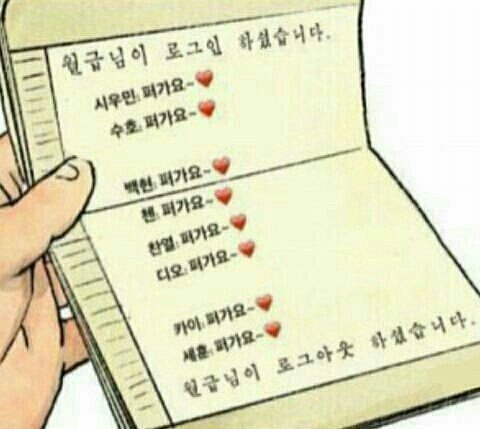 월급님이 로그인 하셨습니다.
시우민: 퍼가요~♥
수호: 퍼가요~♥
백현: 퍼가요~♥
첸: 퍼가요~♥
찬열: 퍼가요~♥
디오: 퍼가요~♥
카이: 퍼가요~♥
세훈: 퍼가요~♥
월급님이 로그아웃 하셨습니다.